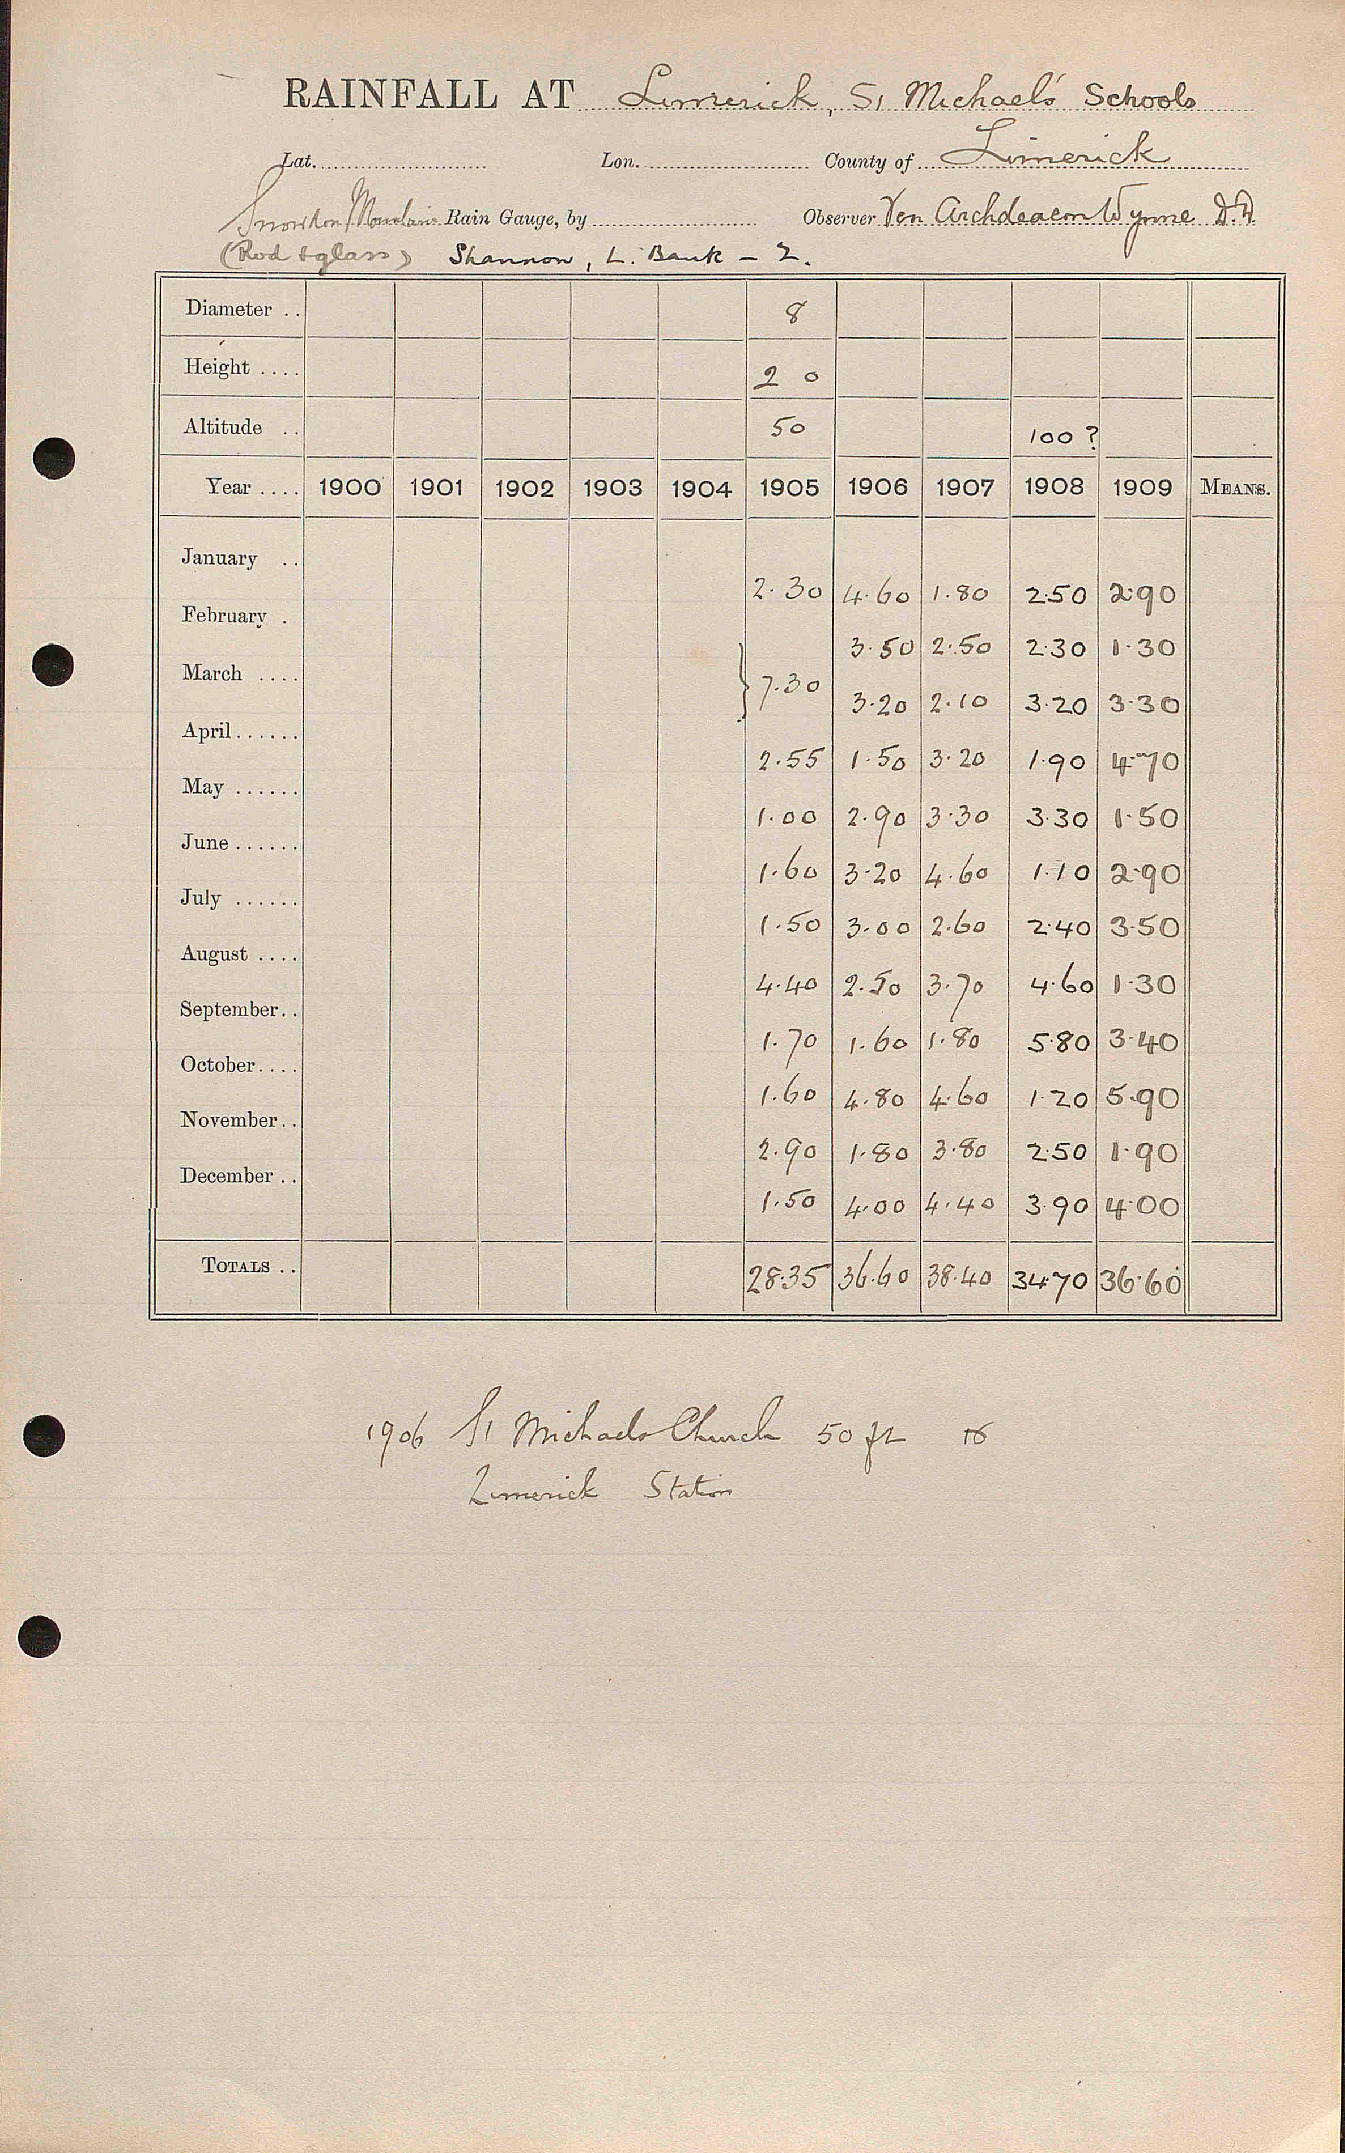 RAINFALL AT Limerick, St Michael's Schools
Lat. Lon. County of Limerick
Snowdon Mountain Rain Gauge, by Observer Ven Archdeacon Wynne D.D.
(Rod & glass) Shannon, L. Bank – 2.
Diameter .. 8
Height .... 2 0
Altitude .. 50 100 ?
Year .... 1900 1901 1902 1903 1904 1905 1906 1907 1908 1909 MEANS.
January .. 2.30 4.60 1.80 2.50 2.90
February . 3.50 2.50 2.30 1.30
March .... } 7.30 3.20 2.10 3.20 3.30
April...... 2.55 1.50 3.20 1.90 4.70
May ...... 1.00 2.90 3.30 3.30 1.50
June...... 1.60 3.20 4.60 1.10 2.90
July ...... 1.50 3.00 2.60 2.40 3.50
August .... 4.40 2.50 3.70 4.60 1.30
September.. 1.70 1.60 1.80 5.80 3.40
October.... 1.60 4.80 4.60 1.20 5.90
November.. 2.90 1.80 3.80 2.50 1.90
December .. 1.50 4.00 4.40 3.90 4.00
TOTALS .. 28.35 36.60 38.40 34.70 36.60
1906 St Michaels Church 50 ft
Limerick Station